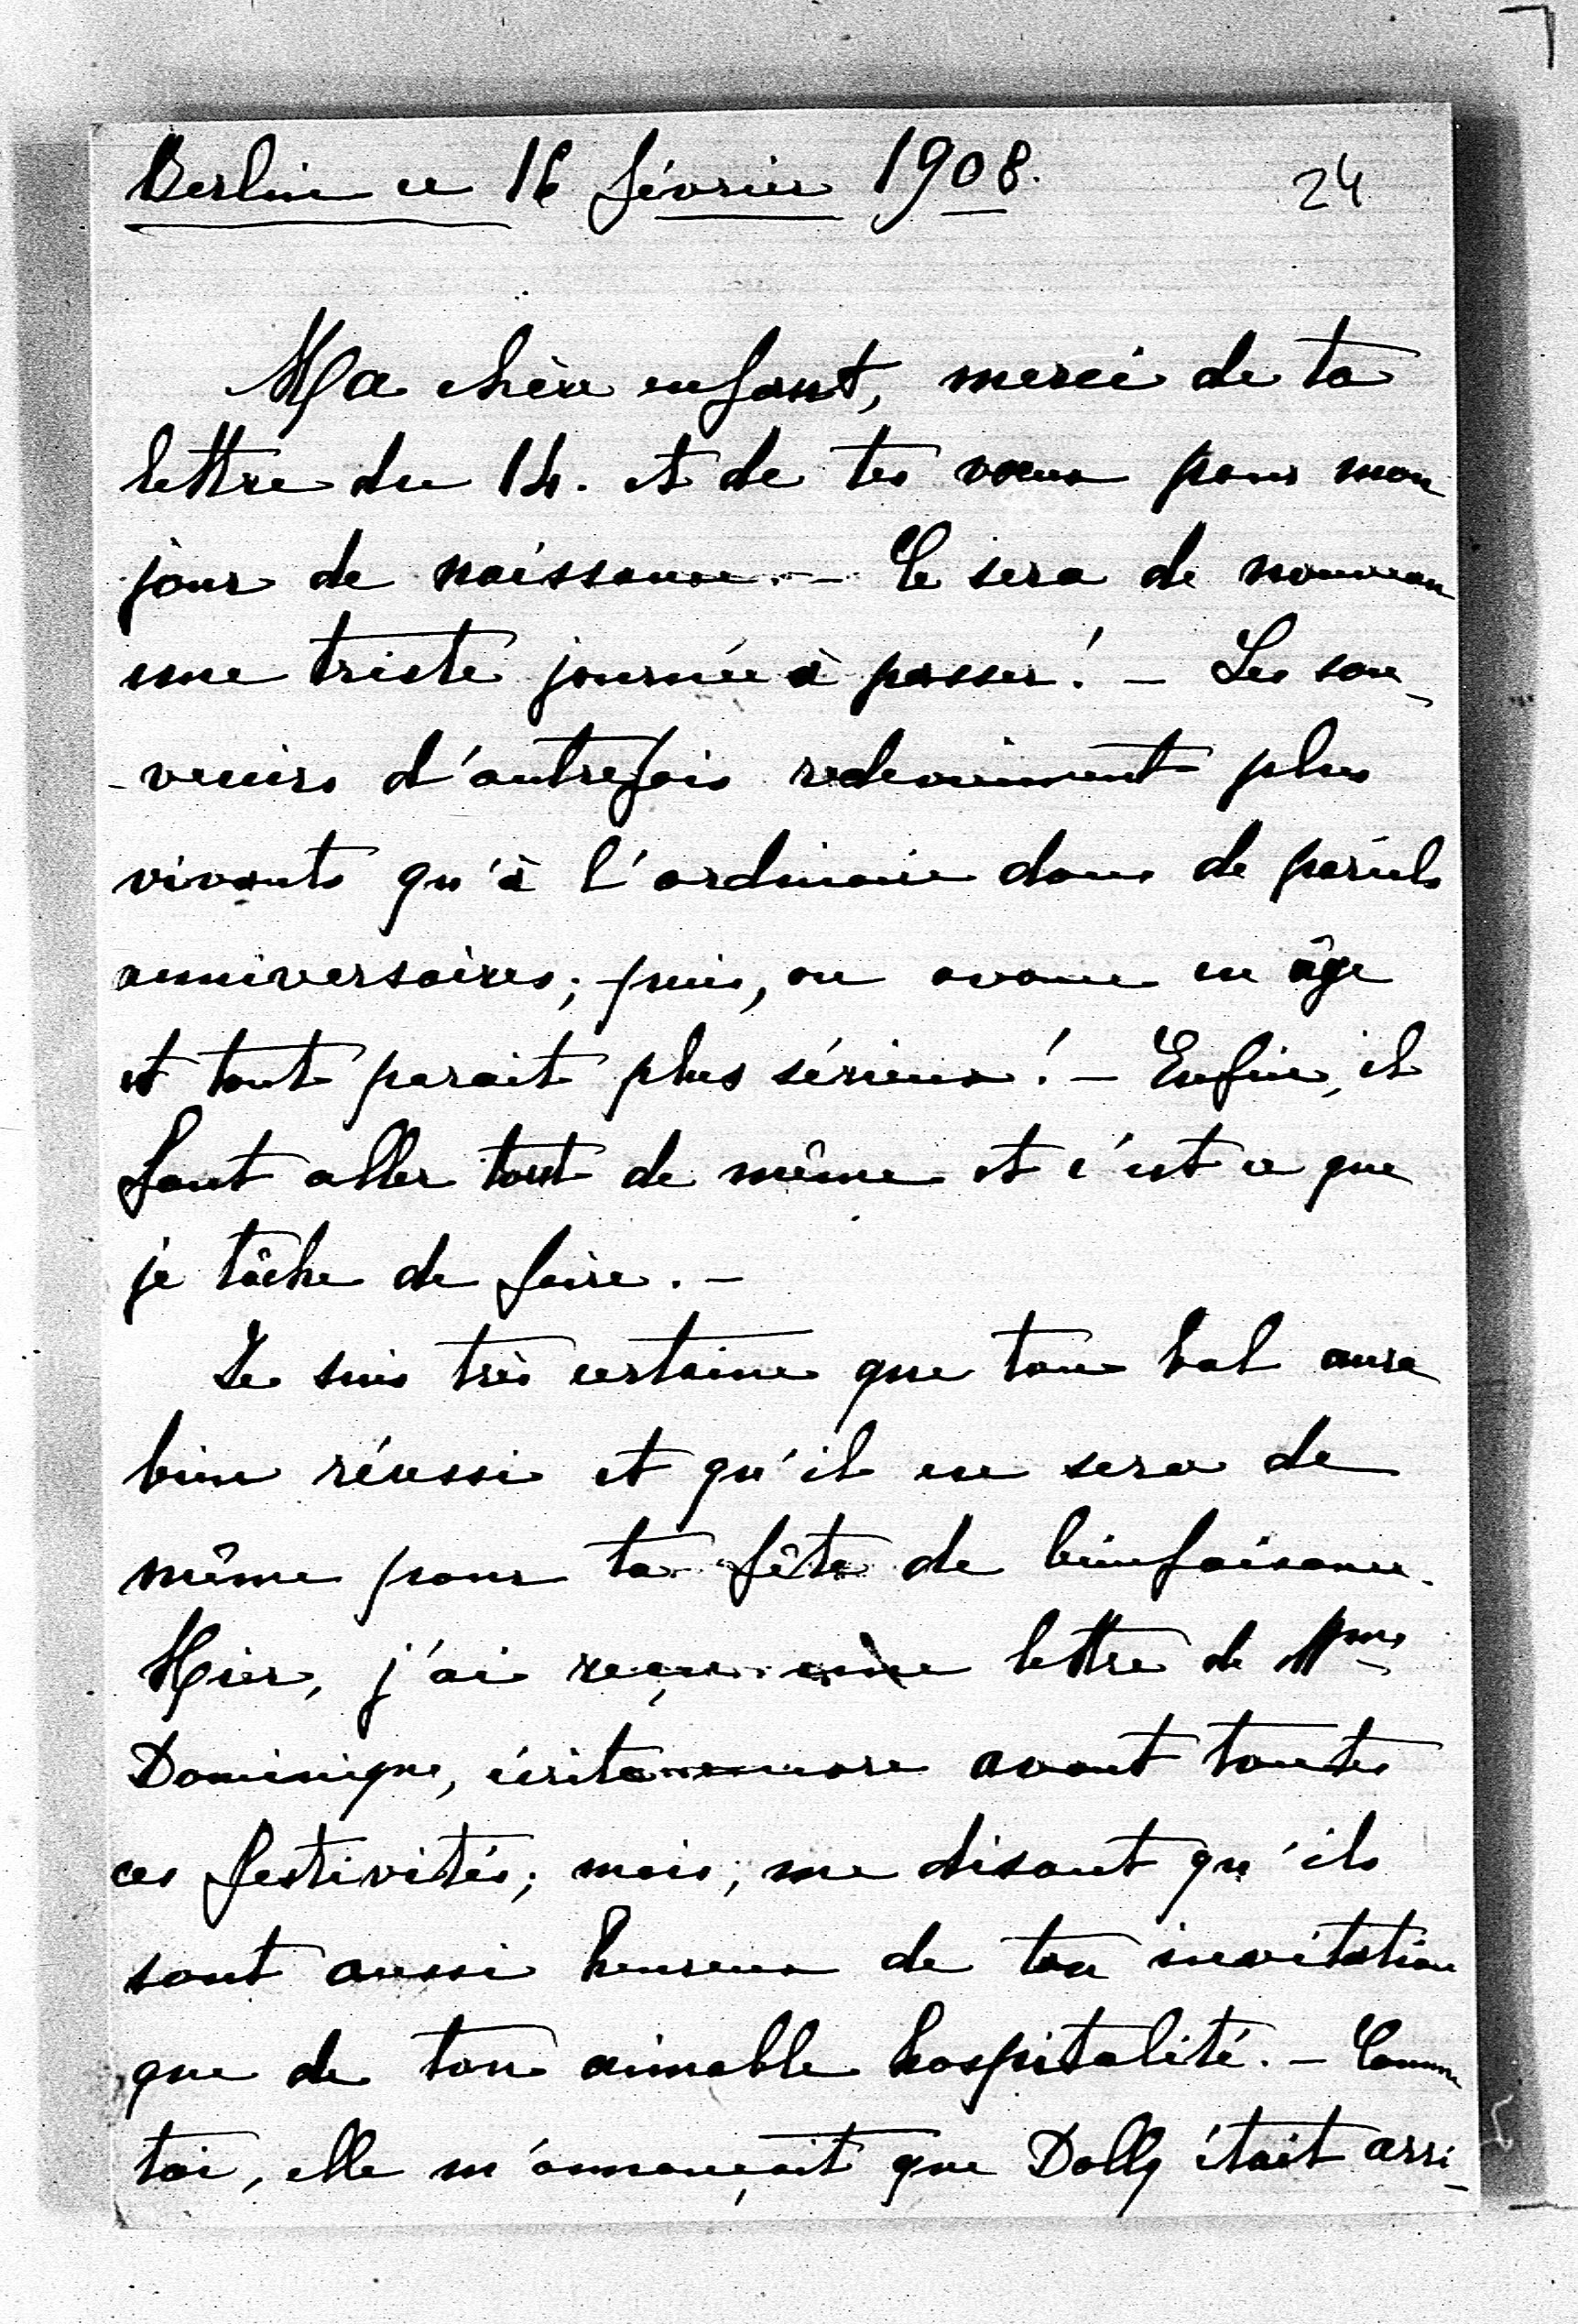 Berlin ce 16 février 1908.
24
Ma chère enfant, merci de ta
lettre du 14. et de tes vœux pour mon
jour de naissance. - Ce sera de nouveau
une triste journée à passer! - Les sou-
-venirs d'autrefois redeviennent plus
vivants qu'à l'ordinaire dans de pareils
anniversaires; puis, on avance en âge
et tout parait plus sérieux! - Enfin, il
faut aller tout de même et c'est ce que
je tâche de faire. -
Je suis très certaine que ton bal aura
bien réussi et qu'il en sera de
même pour ta fête de bienfaisance.
Hier, j'ai reçu une lettre de Mme
Dominique, écrite encore avant toutes
ces festivités; mais, me disant qu'ils
sont aussi heureux de ton invitation
que de ton aimable hospitalité. - Comme
toi, elle m'annonçait que Dolly était arri-